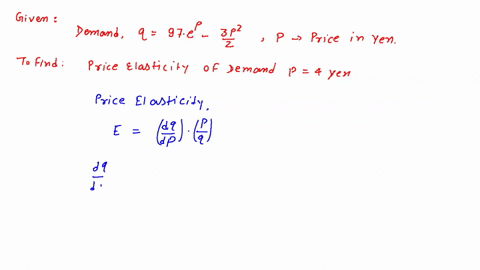 Given:
Demand, q = 97·e^P - 3P²/2 , P → Price in yen.
To Find: Price Elasticity of Demand P = 4 yen
Price Elasticity,
E = (dq/dP)·(P/q)
dq/d.